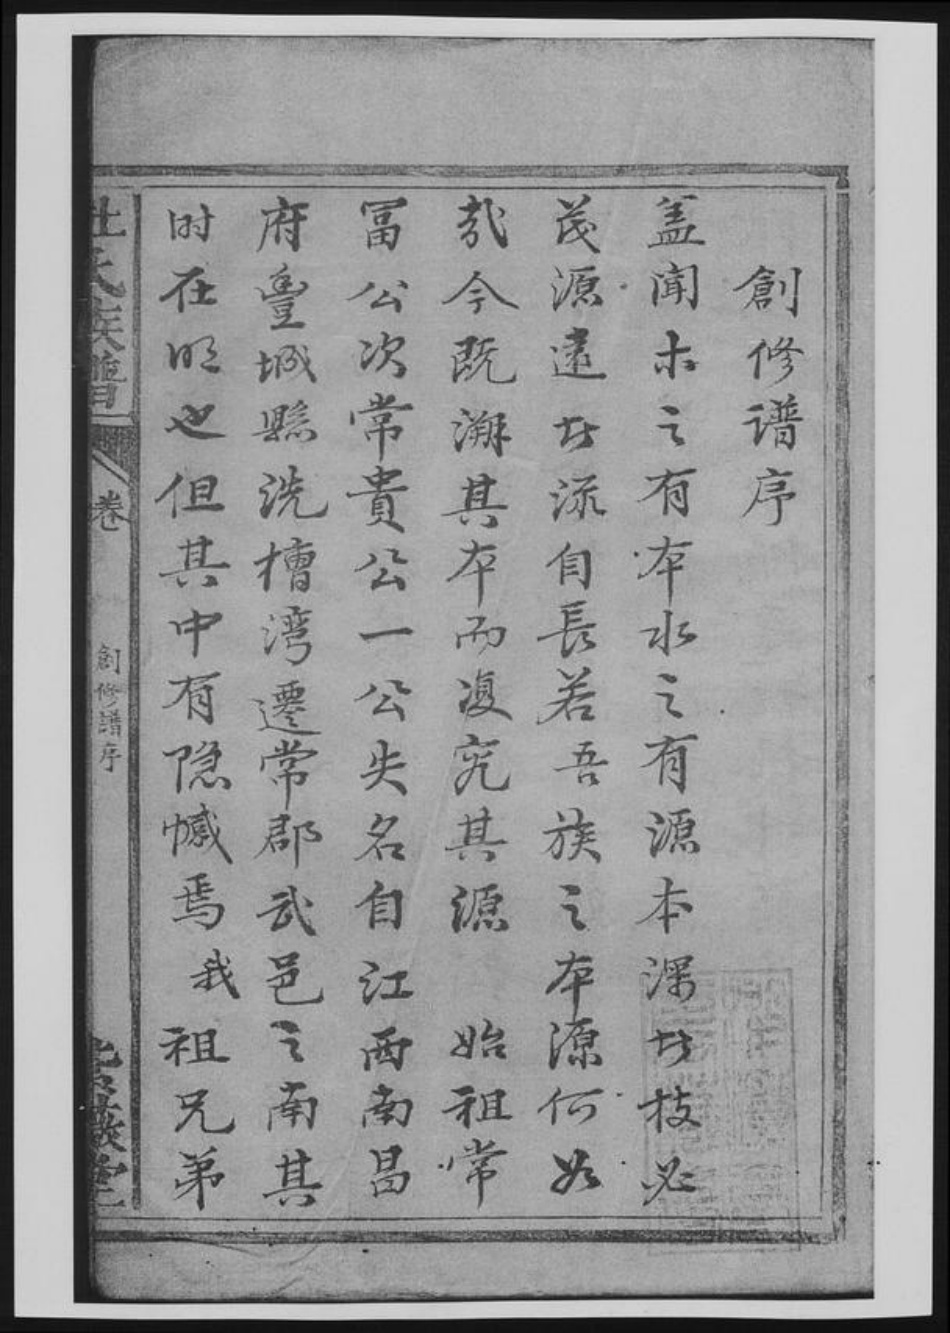 創修譜序
盖聞木之有本水之有源本深者枝必
茂源遠者流自長若吾族之本源何如
哉今既溯其本而復究其源 始祖常
冨公次常貴公一公失名自江西南昌
府豐城縣洗槽湾遷常郡武邑之南其
时在明也但其中有隐憾焉我祖兄弟
杜氏族譜
卷
創修譜序